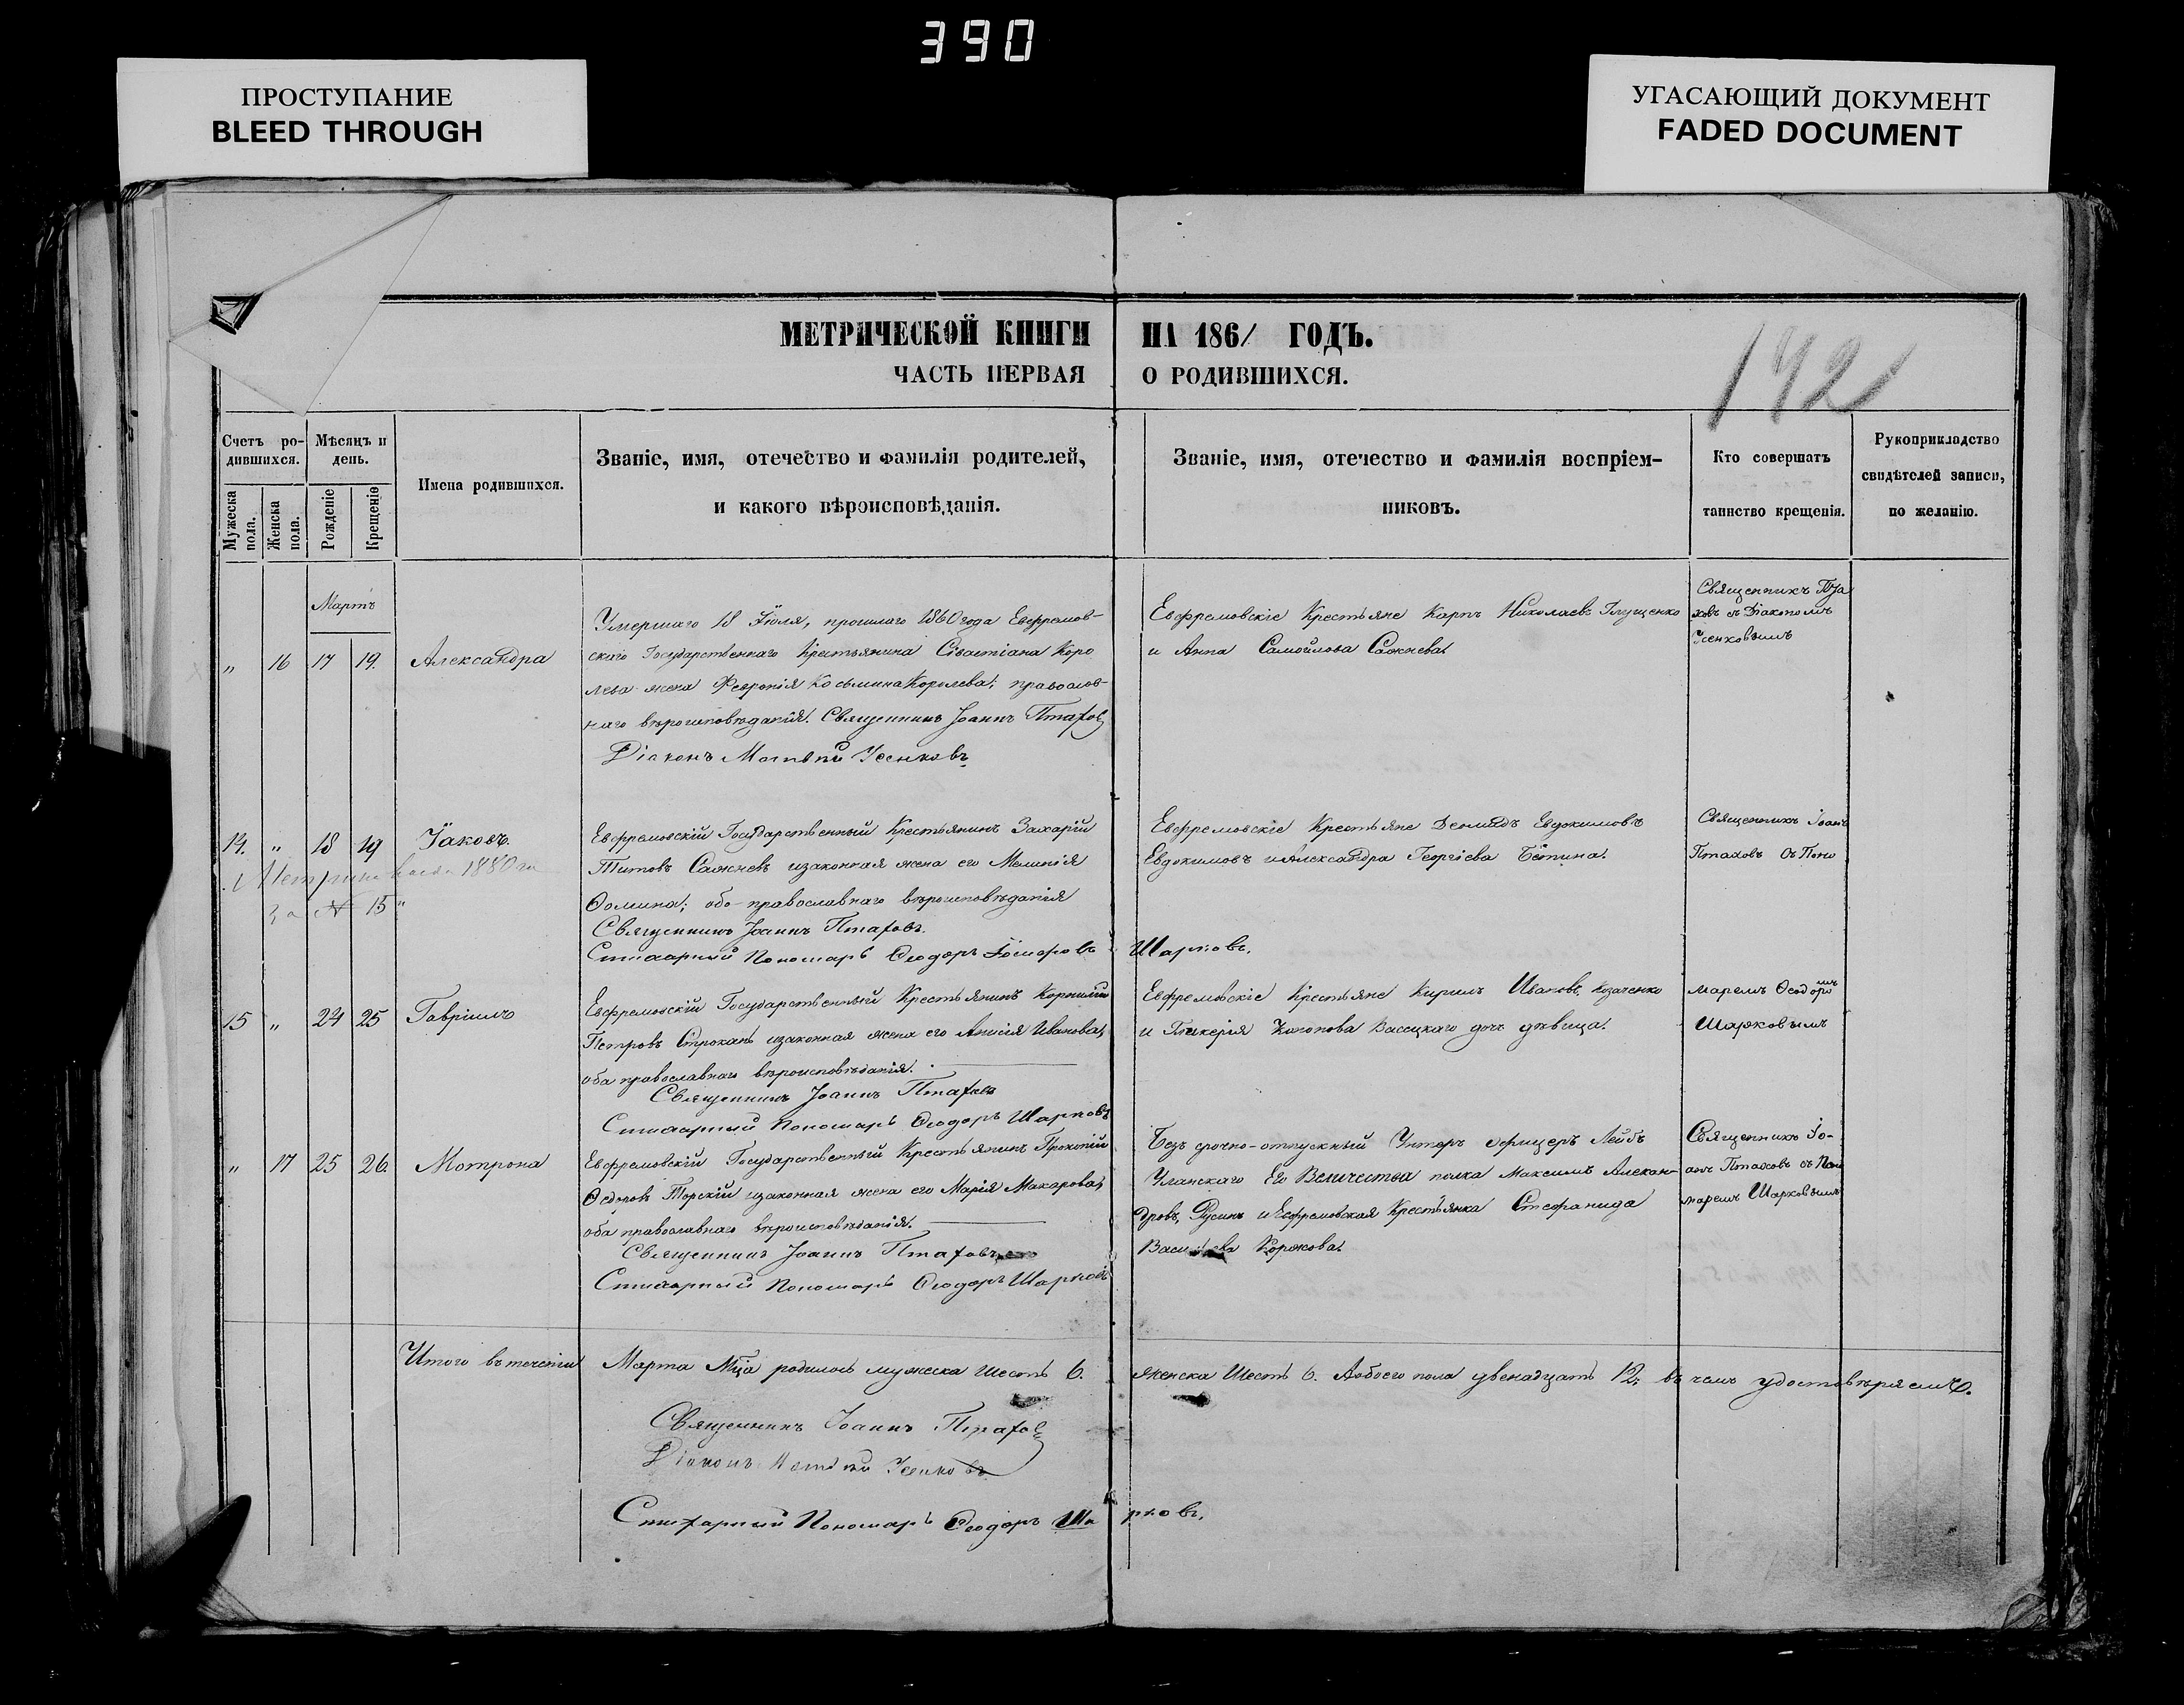 390
ПРОСТУПАНИЕ
BLEED THROUGH
УГАСАЮЩИЙ ДОКУМЕНТ
FADED DOCUMENT
МЕТРИЧЕСКОЙ КНИГИ НА 1861 ГОДЪ.
ЧАСТЬ ПЕРВАЯ О РОДИВШИХСЯ.
192
Счетъ ро-
дившихся.
Мужеска
пола.
Женска
пола.
Мѣсяцъ и
день.
Рожденіе
Крещеніе
Имена родившихся.
Званіе, имя, отечество и фамилія родителей,
и какого вѣроисповѣданія.
Званіе, имя, отечество и фамилія воспріем-
никовъ.
Кто совершатъ
таинство крещенія.
Рукоприкладство
свидѣтелей записи,
по желанію.
Мартъ
„ 16 17 19. Александра
Умершаго 18 Іюля, прошлаго 1860 года Евфремов-
скаго Государственнаго Крестьянина Сівастіана Коро
лева жена Февронія Косьмина Королева; православ-
наго вѣроисповѣданія. Священникъ Іоаннъ Птаховъ
Діаконъ Матвѣй Усенковъ
Евфремовскіе Крестьяне Карпъ Николаевъ Глущенко
и Анна Самойлова Сажнева.
Священникъ Пта
ховъ съ Діакономъ
Усенковымъ
14. „ 18 19 Іаковъ.
1880
за № 15
Евфремовскій Государственный Крестьянинъ Захарій
Титовъ Сажневъ изаконная жена его Меланія
Ѳомина; обо православнаго вѣроисповѣданія
Священникъ Іоаннъ Птаховъ.
Стихарный Пономарь Ѳеодоръ Шарковъ.
Евфремовскіе Крестьяне Демидъ Евдокимовъ
Евдокимовъ и Александра Георгіева
Священникъ Іоанъ
Птаховъ съ Поно
15 „ 24 25 Гавріилъ
Евфремовскій Государственный Крестьянинъ Корнилій
Петровъ Строкань изаконная жена его Анисія Иванова,
оба православнаго вѣроисповѣданія.
Священникъ Іоаннъ Птаховъ
Стихарный Пономарь Ѳеодоръ Шарковъ
Евфремовскіе Крестьяне Кирилъ Ивановъ Козаченко
и Гликерія Кононова Васецкаго дочь дѣвица.
маремъ Ѳеодоромъ
Шарковымъ
„ 17 25 26. Мотрона
Евфремовскій Государственный Крестьянинъ Прокопій
Ѳедоровъ Торскій изаконная жена его Марія Макарова,
оба православнаго вѣроисповѣданія.
Священникъ Іоаннъ Птаховъ
Стихарный Пономарь Ѳеодоръ Шарковъ
Безсрочно-отпускный Унтеръ офицеръ Лейбъ
Уланскаго Его Величества полка Максимъ Алексан-
дровъ, Русинъ и Евфремовская Крестьянка Стефанида
Васильева Коржова.
Священникъ Іо-
анъ Птаховъ съ Поно
маремъ Шарковымъ
Итого въ теченіи Марта Мца родилось мужеска Шесть 6. женска Шесть 6. Аобоего пола двенадцать 12. въ чемъ удостовѣряемъ.
Священникъ Іоаннъ Птаховъ
Діаконъ Матвѣй Усенковъ
Стихарный Пономарь Ѳеодоръ Шарковъ.